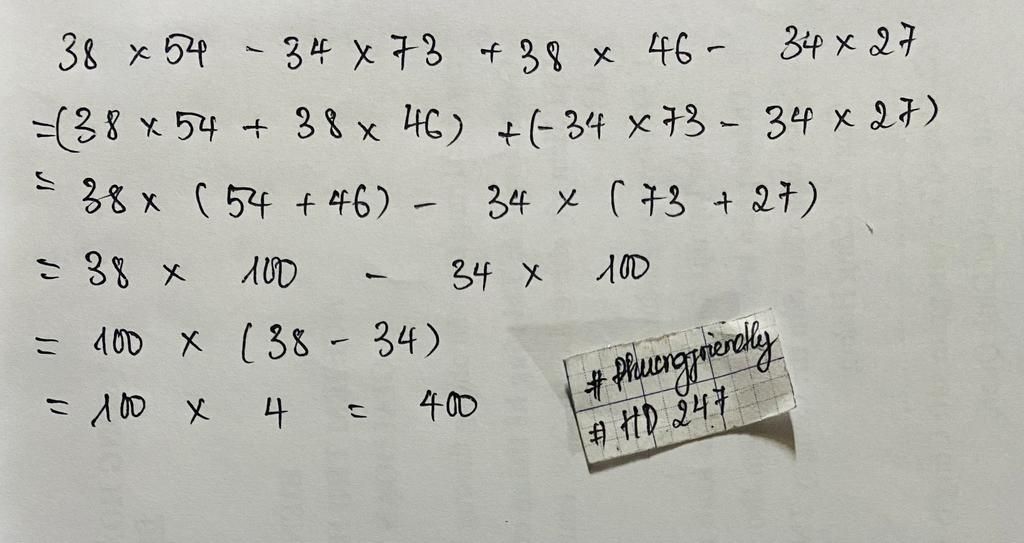 38 × 54 - 34 × 73 + 38 × 46 - 34 × 27
=(38 × 54 + 38 × 46) +(-34 × 73 - 34 × 27)
= 38 × (54 + 46) - 34 × (73 + 27)
= 38 × 100 - 34 × 100
= 100 × (38 - 34)
= 100 × 4 = 400
# Phuongfriendly
# HD 247